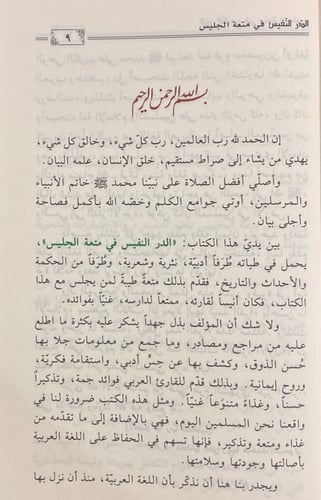 الدر النفيس في متعة الجليس
٩
بسم الله الرحمن الرحيم
إن الحمد لله رب العالمين، رب كلّ شيء، وخالق كل شيء،
يهدي من يشاء إلى صراط مستقيم، خلق الإنسان، علمه البيان.
وأصلّي أفضل الصلاة على نبيّنا محمد ﷺ خاتم الأنبياء
والمرسلين، أوتي جوامع الكلم وخصّه الله بأكمل فصاحة
وأجلى بيان.
بين يديّ هذا الكتاب: «الدر النفيس في متعة الجليس»،
يحمل في طياته طُرَفاً أدبيّة، نثرية وشعرية، وطُرَفاً من الحكمة
والأحداث والتاريخ، فقدّم بذلك متعةً طيبة لمن يجلس مع هذا
الكتاب، فكان أنيساً لقارئه، ممتعاً لدارسه، غنيّاً بفوائده.
ولا شك أن المؤلف بذل جهداً يشكر عليه بكثرة ما اطلع
عليه من مراجع ومصادر، وما جمع من معلومات جلا بها
حُسن الذوق، وكشف بها عن حِسٍّ أدبي، واستقامة فكريّة،
وروح إيمانية. وبذلك قدّم للقارئ العربي فوائد جمة، وتذكيراً
حسناً، وغذاءً متنوّعاً غنيّاً. ومثل هذه الكتب ضرورة لنا في
واقعنا نحن المسلمين اليوم، فهي بالإضافة إلى ما تقدّمه من
غذاء ومتعة وتذكير، فإنها تسهم في الحفاظ على اللغة العربية
بأصالتها وجودتها وسلامتها.
ويجدر بنا هنا أن نذكّر بأن اللغة العربيّة، منذ أن نزل بها